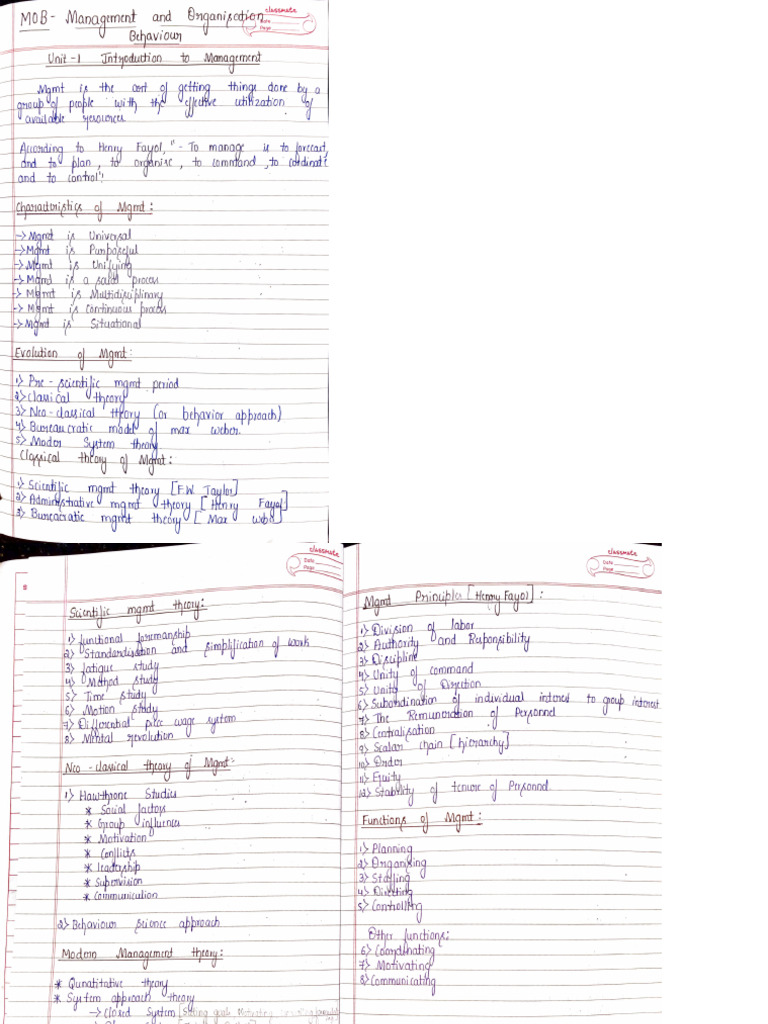 MOB - Management and Organisation
Behaviour
classmate
Date
Page
Unit-1 Introduction to Management
Mgmt is the art of getting things done by a
group of people with the effective utilization of
available resources
According to Henry Fayol, "- To manage is to forecast,
and to plan, to organise, to command, to cordinat?
and to control".
Characteristics of Mgmt:
-> Mgmt is Universal
-> Mgmt is Purposeful
-> Mgmt is Unifying
-> Mgmt is a social process
-> Mgmt is Multidisciplinary
-> Mgmt is Continuous process
-> Mgmt is Situational
Evolution of Mgmt:
1) Pre-scientific mgmt period
2) Classical theory
3) Neo-classical theory (or behavior approach)
4) Bureaucratic model of max weber.
5) Moder System theory
Classical theory of Mgmt:
1) Scientific mgmt theory [F.W. Taylor]
2) Administrative mgmt theory [Henry Fayol]
3) Bureacratic mgmt theory [Max Weber]
classmate
Date
Page
Scientific mgmt theory:
1) functional foremanship
2) Standardisation and simplification of work
3) fatigue study
4) Method study
5) Time study
6) Motion study
7) Differential piece wage system
8) Mental revolution
Neo-classical theory of Mgmt:
1) Hawthrone Studies
* Social factors
* Group influences
* Motivation
* Conflicts
* leadership
* Supervision
* Communication
2) Behaviour science approach
Modern Management theory:
* Qunatitative theory
* System approach theory
-> Closed System [Setting goals Motivating
classmate
Date
Page
Mgmt Principles [Henry Fayol]:
1) Division of labor
2) Authority and Reponsibility
3) Discipline
4) Unity of command
5) Unity of Direction
6) Subordination of individual interest to group interest
7) The Remuneration of Personnel
8) Centralisation
9) Scalar chain [hierarchy]
10) Order
11) Equity
12) Stability of tenure of Personnel
Functions of Mgmt:
1) Planning
2) Organising
3) Staffing
4) Directing
5) Controlling
Other functions:
6) Coordinating
7) Motivating
8) Communicating